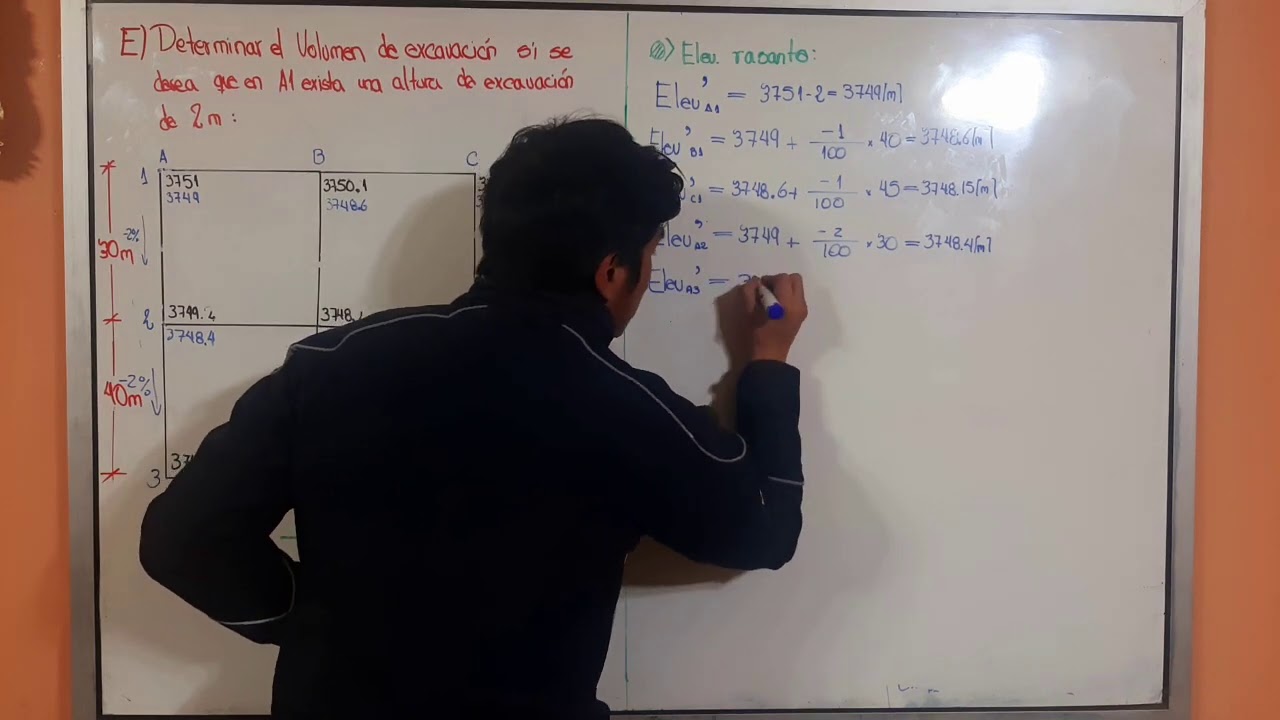 E) Determinar el Volumen de excavación si se
desea que en A1 exista una altura de excavación
de 2m:
A B C
1 3751 3750.1
3749 3748.6
-2%
30m
2 3749.2 3748.
3748.4
-2%
40m
3 37
Elev. rasante:
Elev'A1 = 3751-2=3749[m]
Elev'B1 = 3749 + -1/100 * 40 = 3748.6[m]
'C1 = 3748.6+ -1/100 * 45 = 3748.15[m]
Elev'A2 = 3749 + -2/100 *30 = 3748.4[m]
Elev'A3 =